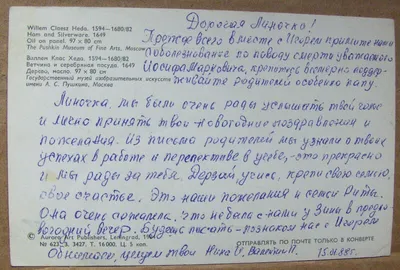 Willem Claesz Heda, 1594—1680/82
Ham and Silverware. 1649
Oil on panel. 97 × 80 cm
The Pushkin Museum of Fine Arts, Moscow
Виллем Клас Хеда. 1594—1680/82
Ветчина и серебряная посуда. 1649
Дерево, масло. 97 × 80 см
Государственный музей изобразительных искусств
им. А. С. Пушкина, Москва
Дорогая Линочка!
Прежде всего вместе с Игорем примите наши
соболезнование по поводу смерти уважаемого
Иосифа Марковича, крепитесь, всемерно поддер-
живайте родителей особенно папу.
Линочка, мы были очень рады услышать твой голос
и лично принять твои новогодние поздравления и
пожелания. Из письма родителей мы узнали о твоих
успехах в работе и перспективе в учебе, это прекрасно
и мы рады за тебя. Дерзай, учись, крепи свою семью,
свое счастье. Это наши пожелания и семьи Риты.
Она очень сожалела, что не была с нами у Зины в предно-
вогодний вечер. Будешь писать - познакомь нас с Игорем
Обнимаем, целуем твои
15.01.88г.
© Aurora Art Publishers, Leningrad, 1984
№ 623. 3-3427. Т. 16 000. Ц. 5 коп.
ОТПРАВЛЯТЬ ПО ПОЧТЕ ТОЛЬКО В КОНВЕРТЕ